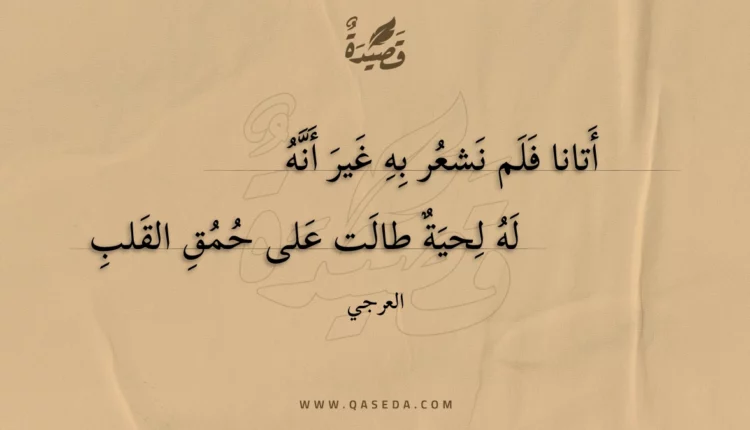 قَصِيْدَةٌ
أَتانا فَلَم نَشعُر بِهِ غَيرَ أَنَّهُ
لَهُ لِحيَةٌ طالَت عَلى حُمُقِ القَلبِ
العرجي
WWW.QASEDA.COM